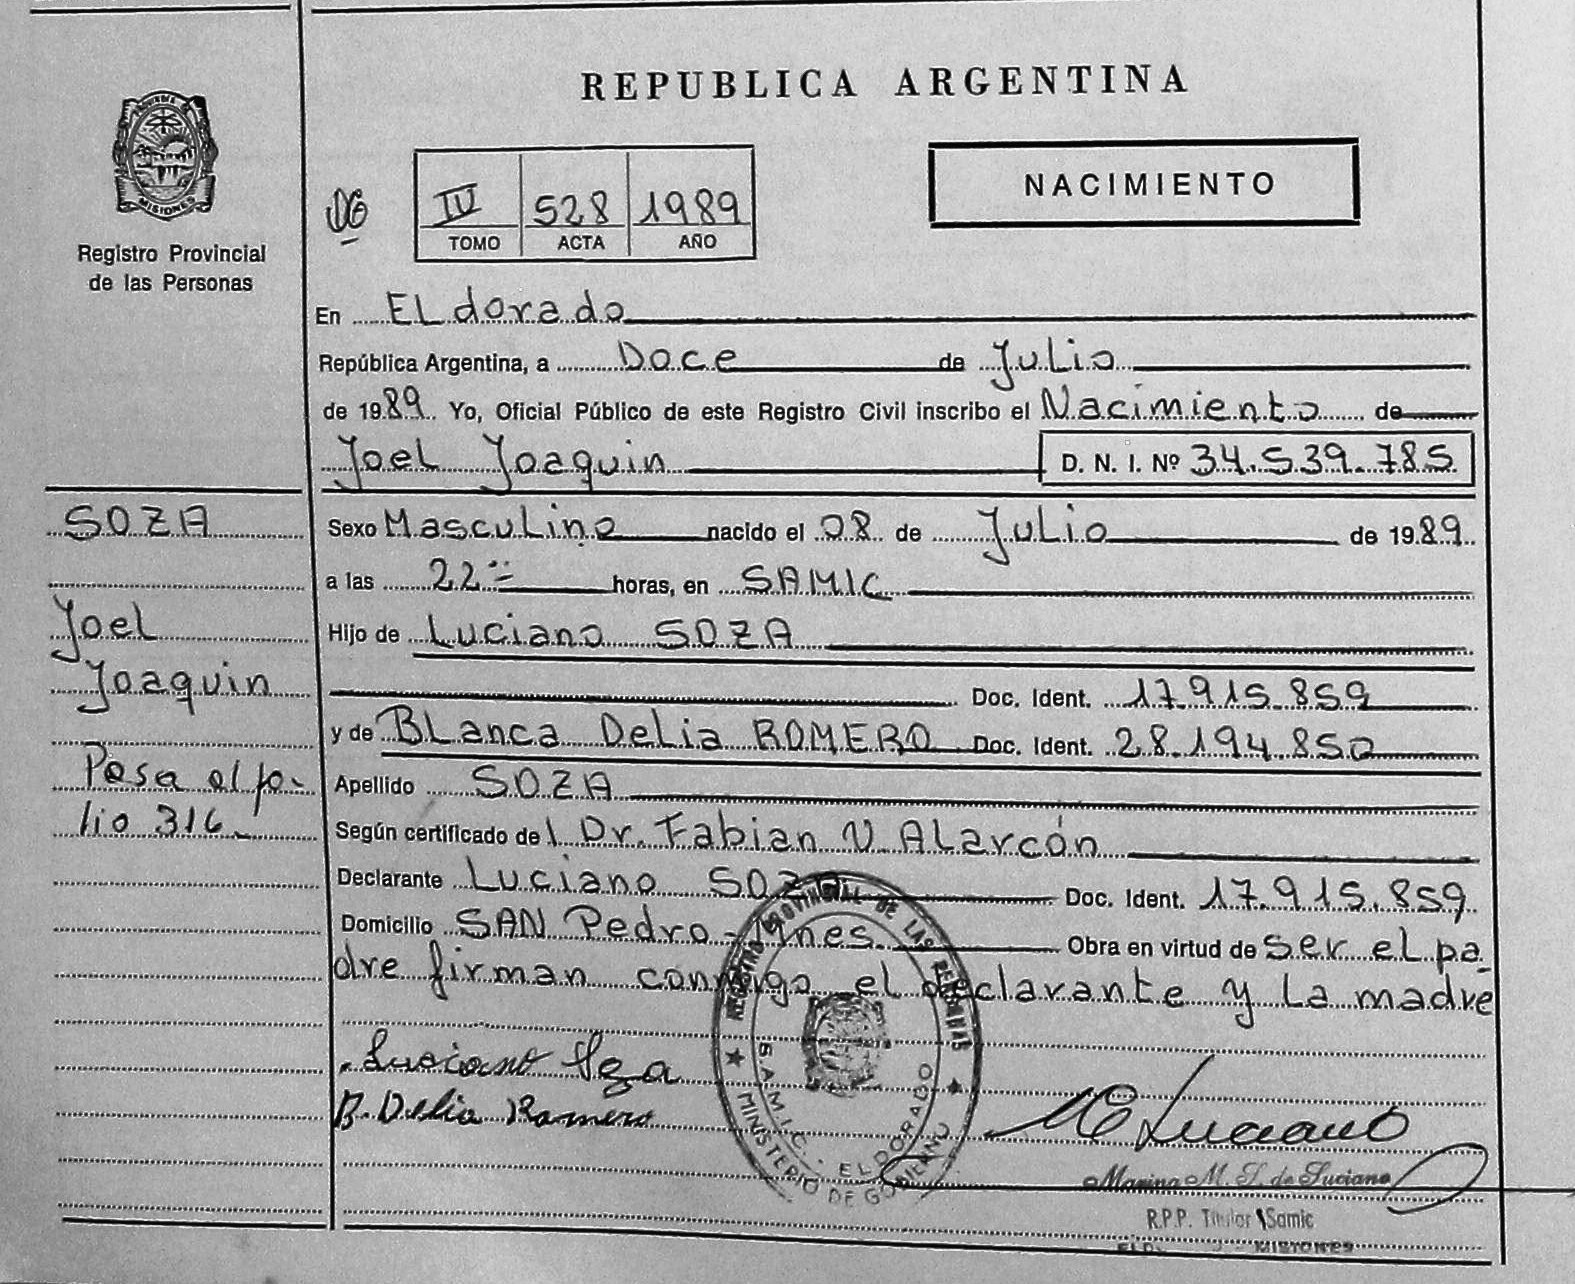 REPUBLICA ARGENTINA
MISIONES
Registro Provincial
de las Personas
IV 528 1989
TOMO ACTA AÑO
NACIMIENTO
En ELdorado
República Argentina, a Doce de Julio
de 1989. Yo, Oficial Público de este Registro Civil inscribo el Nacimiento de
Joel Joaquin D. N. I. Nº 34.539.785
SOZA
Joel
Joaquin
Pasa al fo-
lio 316
Sexo Masculino nacido el 08 de Julio de 1989.
a las 22 horas, en SAMIC
Hijo de Luciano SOZA
Doc. Ident. 17.915.859
y de BLanca Delia ROMERO Doc. Ident. 28.194.850
Apellido SOZA
Según certificado del Dr. Fabian V ALarcón
Declarante Luciano SOZA Doc. Ident. 17.915.859
Domicilio SAN Pedro - Mnes. Obra en virtud de ser el pa-
dre firman conmigo el declarante y La madre
Luciano Soza
B. Delia Romero
REGISTRO PROVINCIAL DE LAS PERSONAS
S.A.M.I.C. - ELDORADO
MINISTERIO DE GOBIERNO
Luciano
Marina M. S. de Luciano
R.P.P. Titular Samic
MISIONES